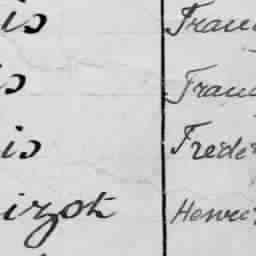 is Franc
is Franc
is Frede
izot Henri